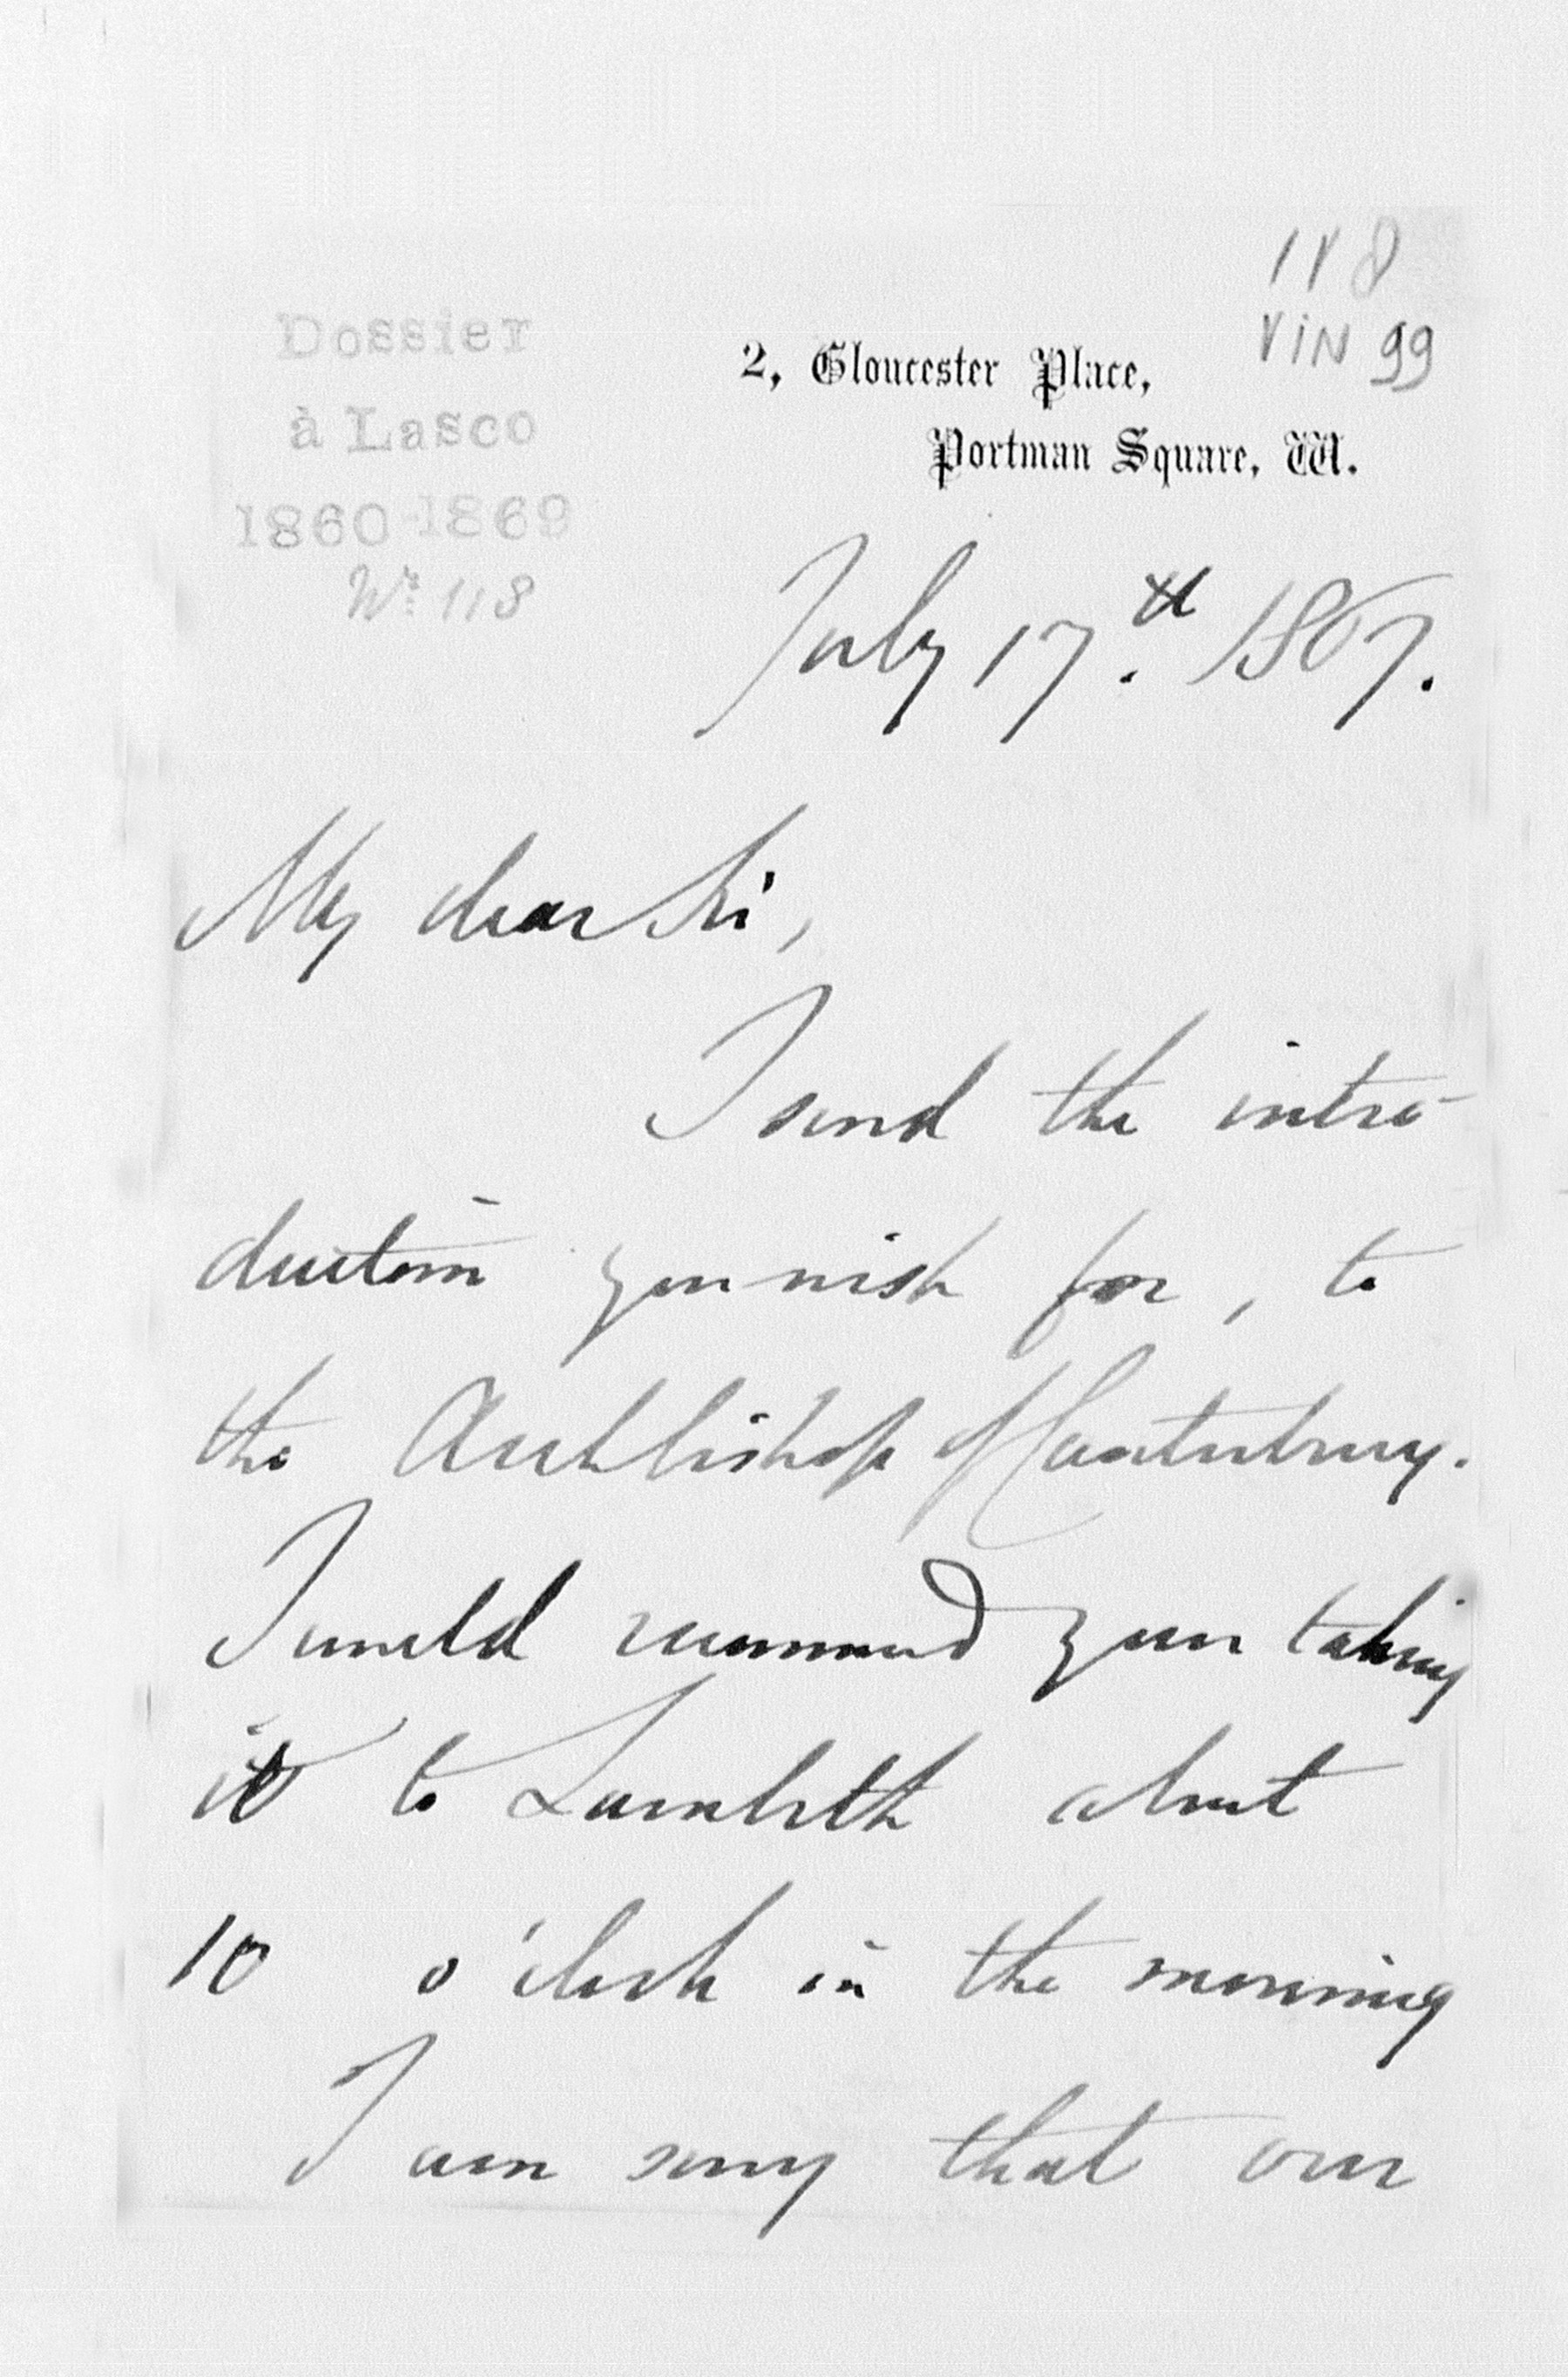 118
VIN 99
Dossier
à Lasco
1860-1869
Nr. 118
2, Gloucester Place,
Portman Square, W.
July 17.th 1867.
My dear Sir,
I send the intro-
duction you wish for, to
the Archbishop of Canterbury.
I would recommend your taking
it to Lambeth about
10 o'clock in the morning
I am sorry that our